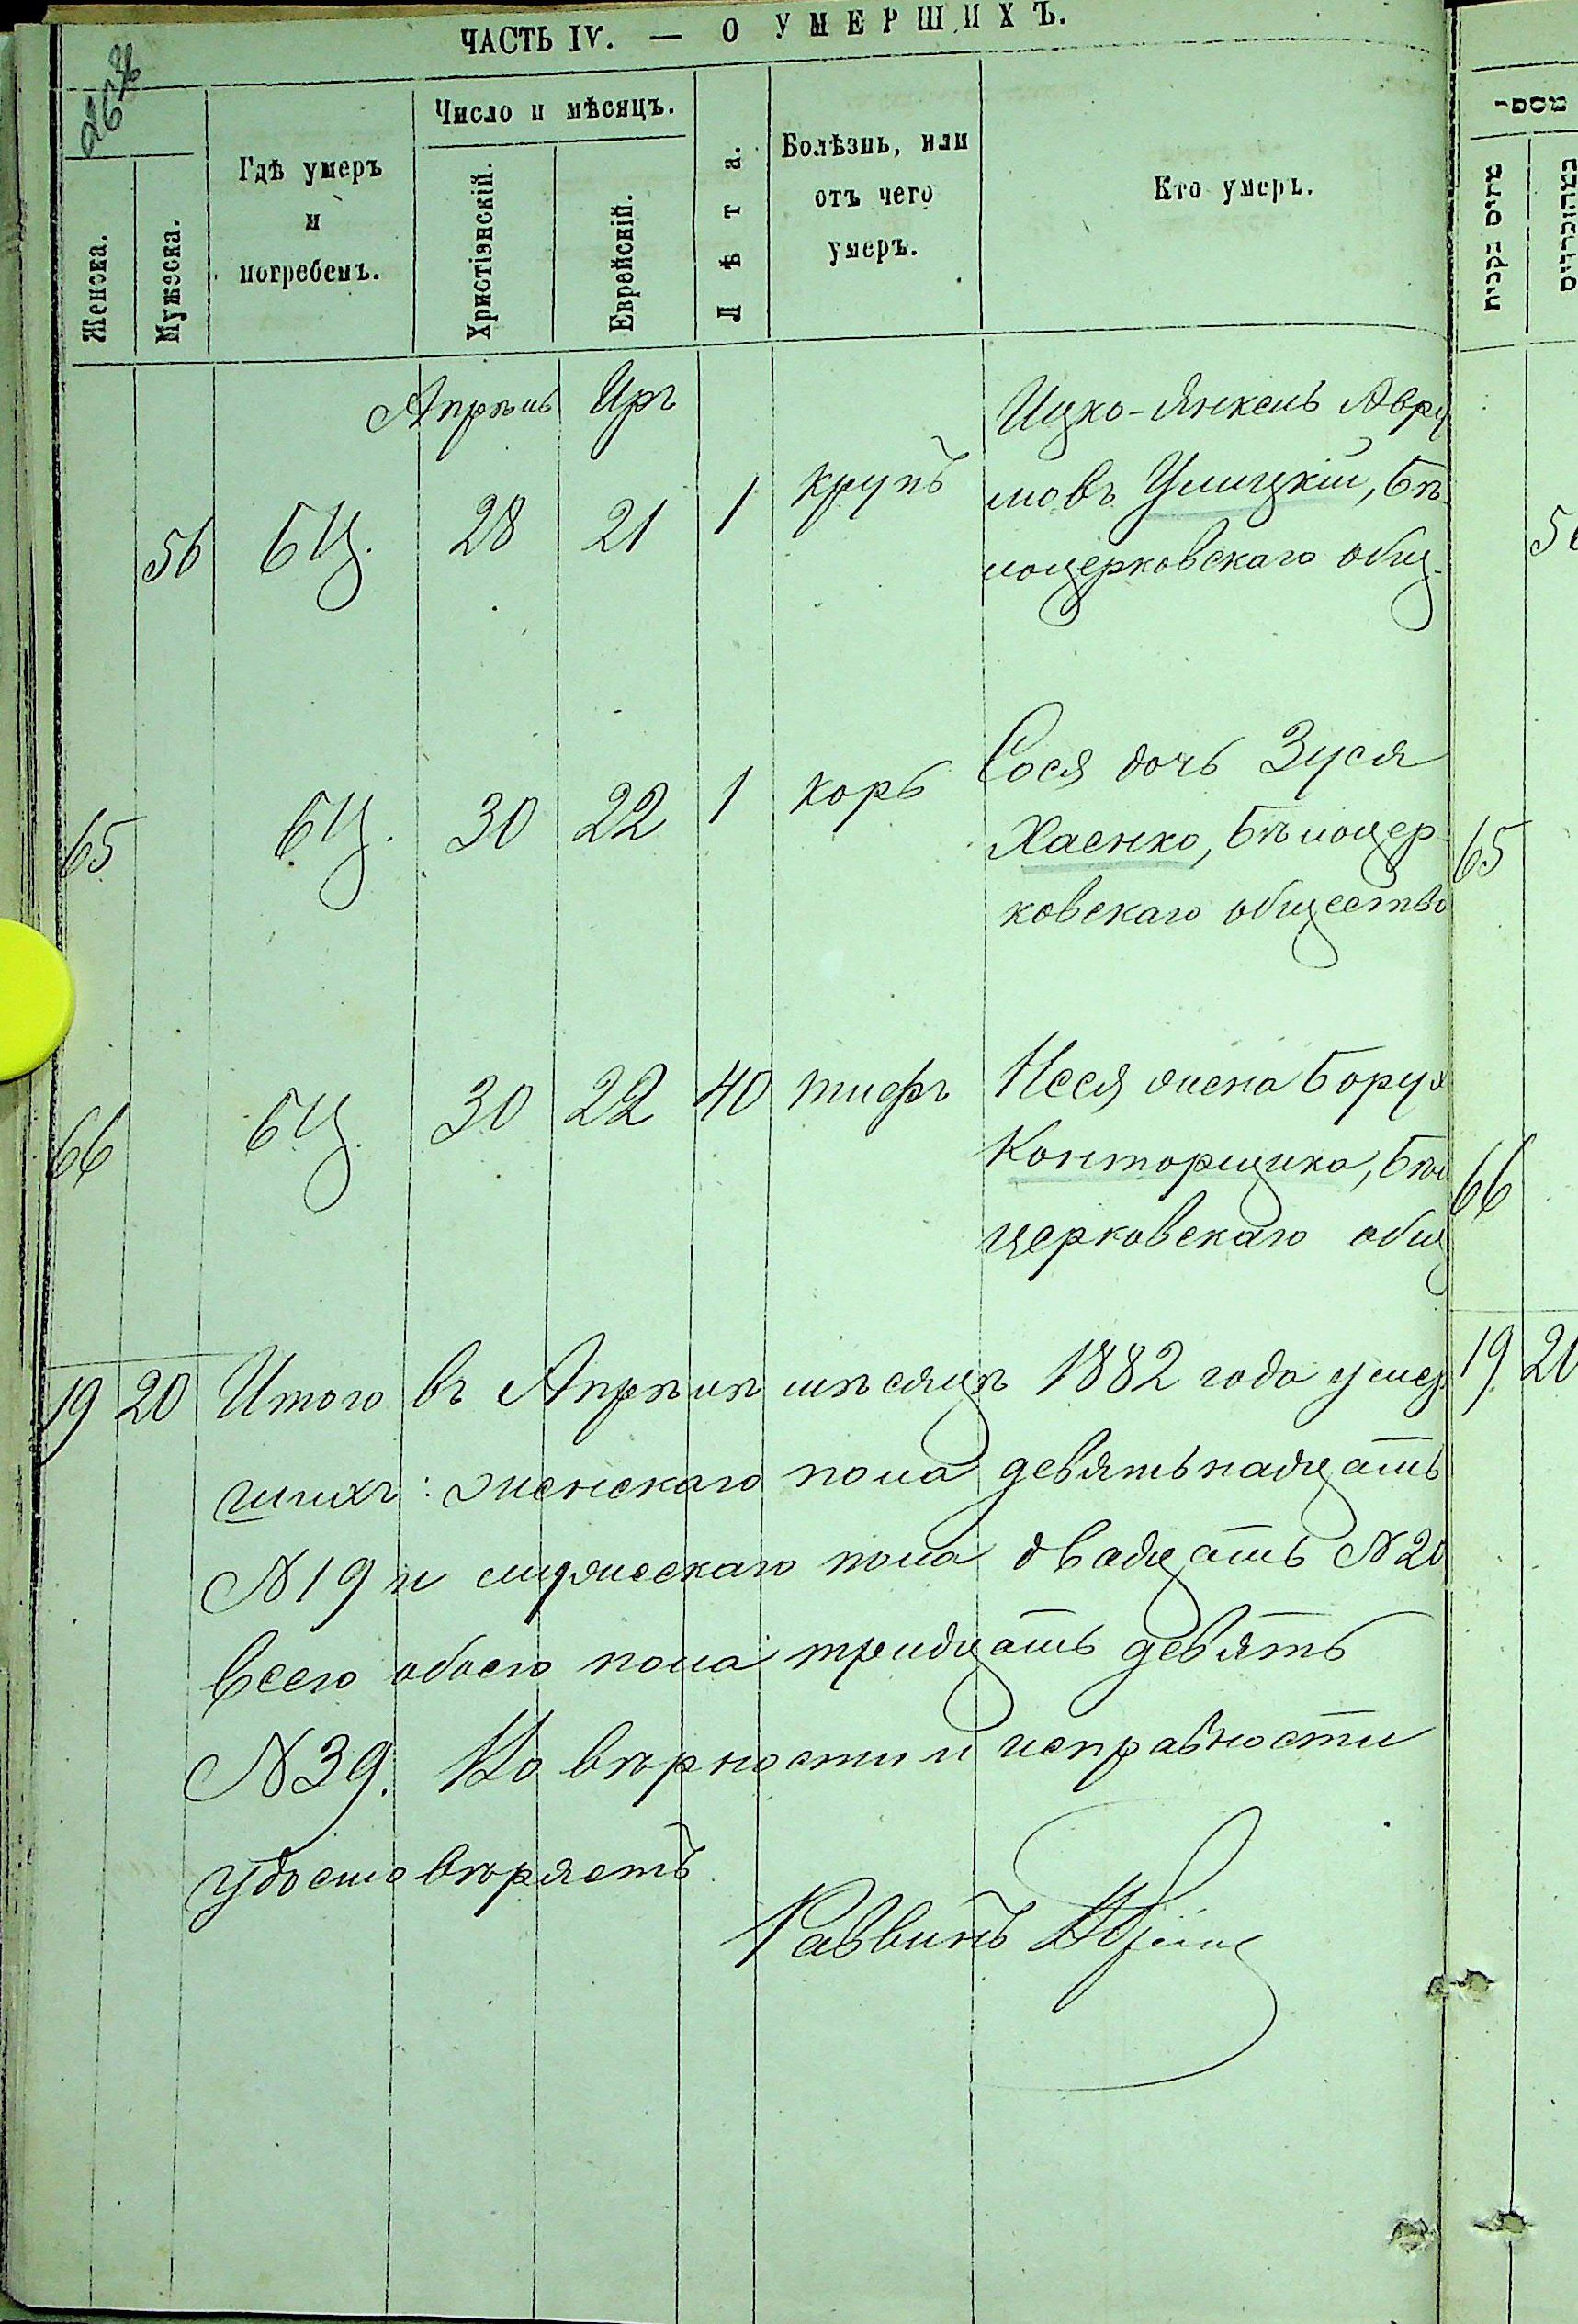 ЧАСТЬ IV. — О УМЕРШИХЪ.
Женска.
Мужеска.
Гдѣ умеръ
и
погребенъ.
Число и мѣсяцъ.
Христіянскій.
Еврейскій.
Лѣта.
Болѣзнь, или
отъ чего
умеръ.
Кто умеръ.
מתים נקבות
Апрѣль Иръ
56 БЦ. 28 21 1 крупъ
Ицко-Янкель Авру
мовъ Улицкій, Бѣ-
лоцерковскаго общ.
65 БЦ. 30 22 1 корь
Сося дочь Зуся
Хаенко, Бѣлоцер-
ковскаго общества
65
66 БЦ. 30 22 40 тифъ
Неся жена Борух
Конторщика, Бѣло
церковскаго общ
66
19 20 Итого въ Апрѣлѣ мѣсяцѣ 1882 года умер
шихъ: женскаго пола девятьнадцать
N 19 и мужескаго пола двадцать N 20
всего обоего пола тридцать девять
N 39. Что вѣрности и исправности
удостовѣряетъ
Раввинъ
19